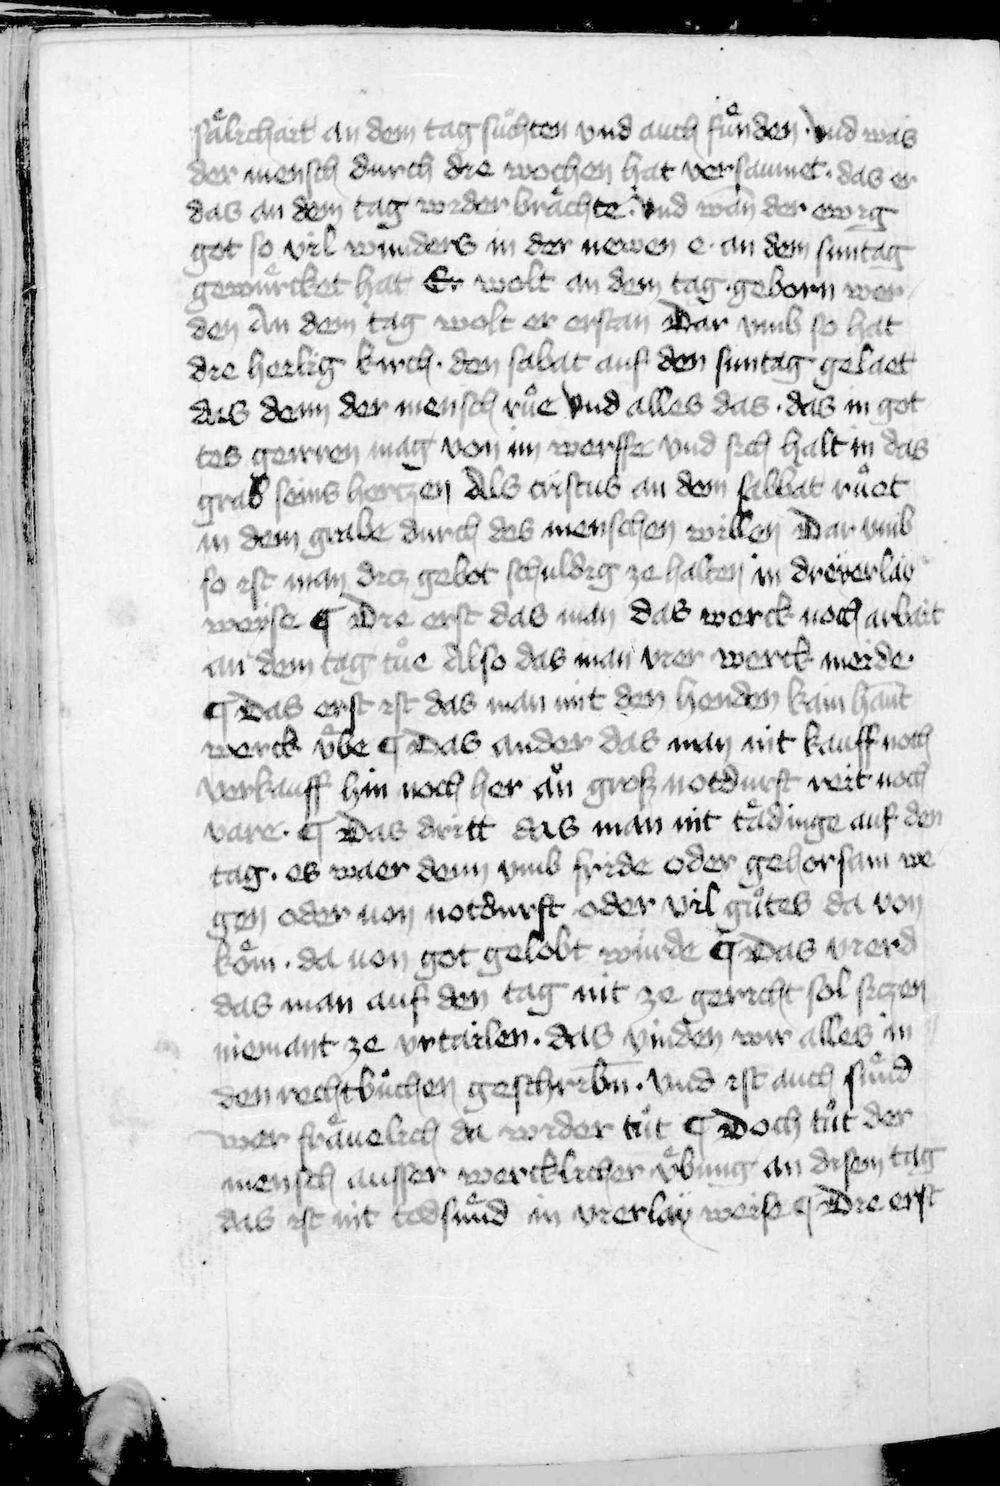 saͤlichait an dem tag suͦchten vnd auch fuͤnden · Vnd was
der mensch durch die wochen hat versaumet · das er
das an dem tag wider braͤchte · Vnd wan der ewig
got so vil wunders in der newen e · an dem suntag
gewuͤrcket hat Er wolt an dem tag · geborn wer
den An dem tag wolt er erstan Dar vmb so hat
die heilig kirch · den sabat auf den suntag gelaet
das denn der mensch ruͦe Vnd alles das · das in got
tes geirren mag von im werffe vnd sich halt in das
grab seins hertzen Als cristus an dem sabbat ruͦet
in dem grabe durch des menschen willen Dar vmb
so ist man ditz gebot schuldig ze halten in dreÿerlaÿ
weise ¶ Die erst das man das werck noch arbait
an dem tag tuͦe Also das man vier werck meide ·
¶ Das erst ist das man mit den henden kain hant
werck uͤbe ¶ Das ander das man nit kauff noch
verkauff hin noch her an groß notdurft reit noch
vare · ¶ Das dritt das man nit taͤdinge auf den
tag · es waer denn vmb fride oder gehorsam we
gen oder von notdurft oder vil guͦtes da von
koͤm · da von got gelobt wurde ¶ Das vierd
das man auf den tag nit ze gericht sol siczen
niemant ze vrtailen · das vinden wir alles in
den rechtbuͤchen geschribn̄ · Vnd ist auch suͤnd
wer fraͤuelich da wider tuͦt ¶ Doch tuͦt der
mensch ausser wercklicher uͤbung an disem tag
das ist nit todsuͤnd in vierlaÿ weise ¶ Die erst